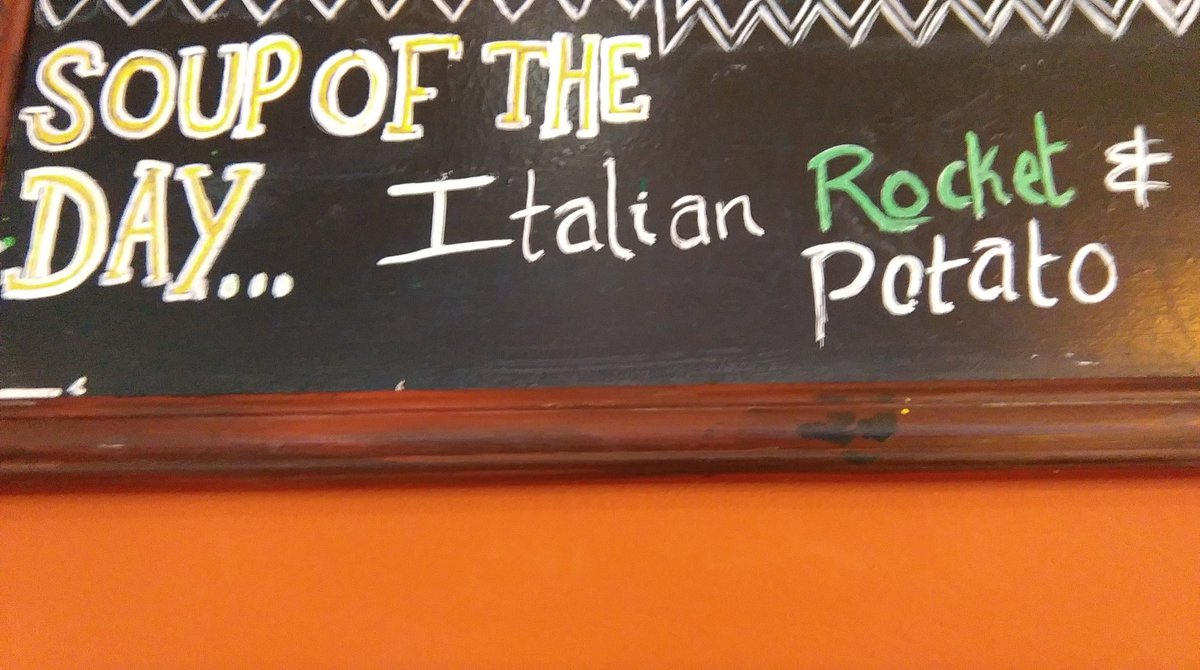 SOUP OF THE
DAY... Italian Rocket &
Potato